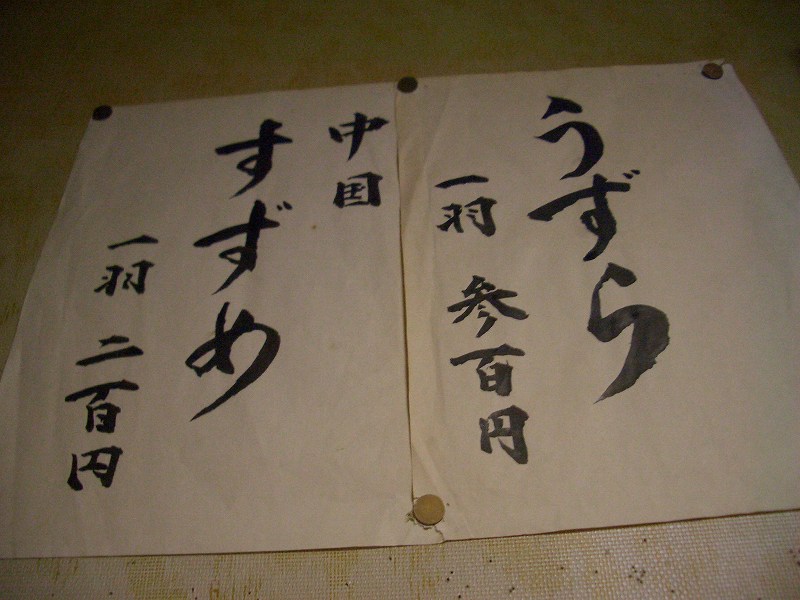 うずら
一羽 参百円
中国
すずめ
一羽 二百円